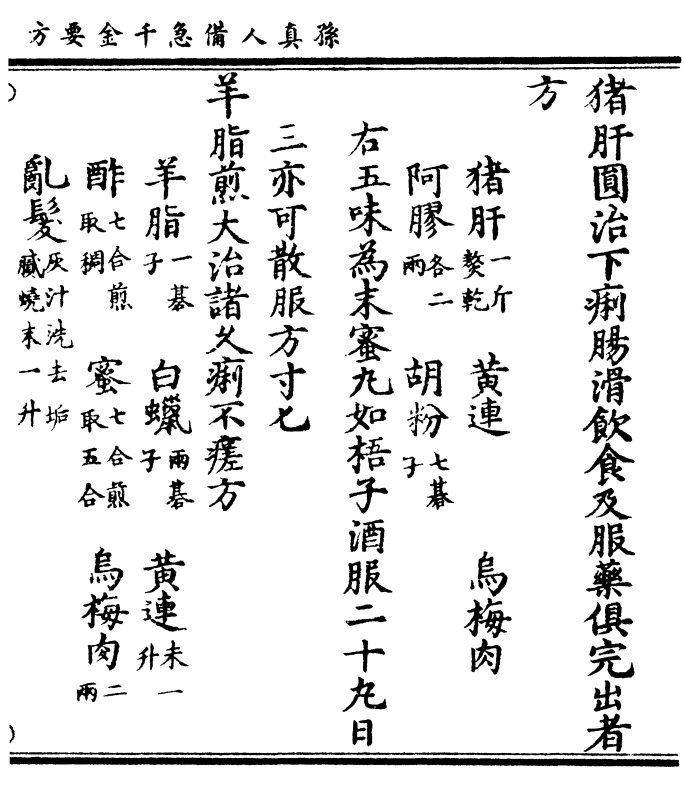 孫真人備急千金要方
猪肝圓治下痢腸滑飲食及服藥俱完出者
方
猪肝一斤熬乾 黃連 烏梅肉
阿膠各二兩 胡粉七棊子
右五味為末蜜丸如梧子酒服二十丸日
三亦可散服方寸匕
羊脂煎大治諸久痢不瘥方
羊脂一棊子 白蠟兩棊子 黃連末一升
酢七合煎取稠 蜜七合煎取五合 烏梅肉二兩
亂髮灰汁洗去垢膩燒末一升